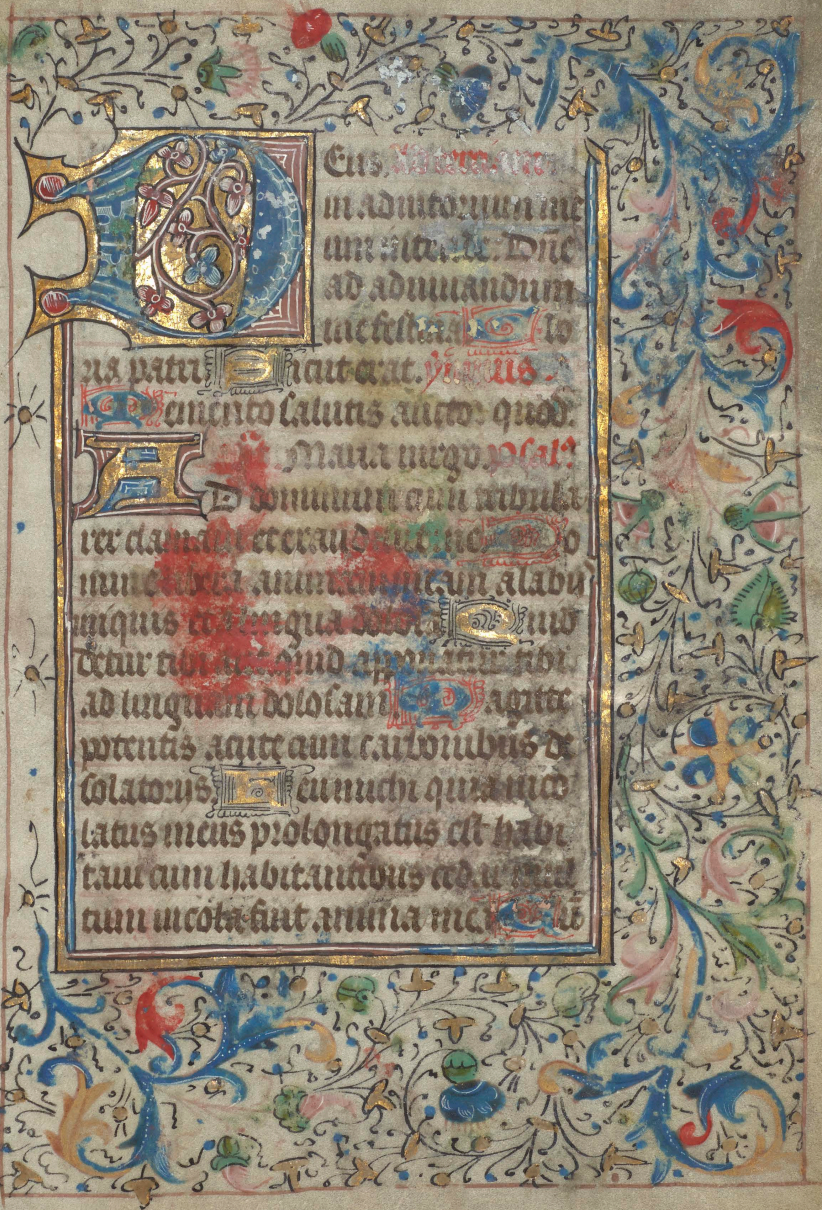 Deus
in adiutorium me
um intende. Dn̄e
ad adiuuandum
me festina Glo
ria patri Sicut erat. ymnus.
Memento salutis auctor quod.
Maria uirgo. Psal̄
AD dominum cum tribula
rer clamaui et exaudiuit me Do
mine libera animam meam a labijs
iniquis et a lingua dolosa Quid
detur tibi aut quid apponatur tibi
ad linguam dolosam Sagitte
potentis acute cum carbonibus de
solatorijs Heu michi quia incō
latus meus prolongatus est habi
taui cum habitantibus cedar mul
tum incola fuit anima mea Cū